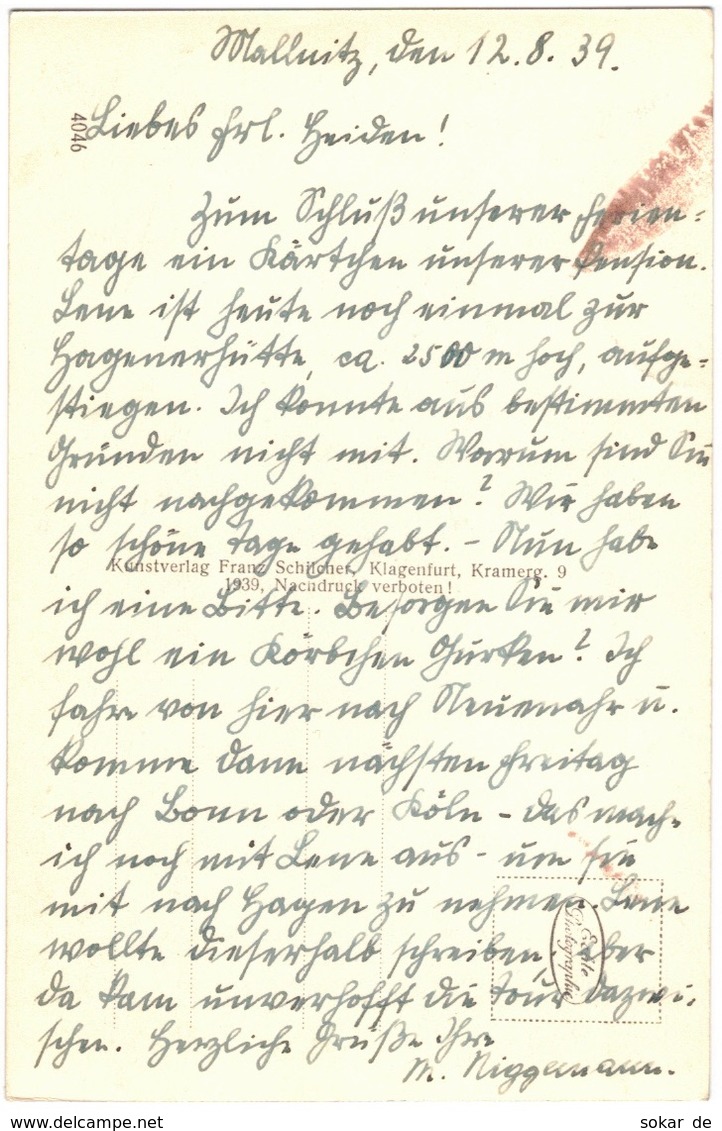 Mallnitz, den 12.8.39.
4046
Liebes Frl. Heiden!
Zum Schluß unserer Ferien=
tage ein Kärtchen unserer Pension.
Lene ist heute noch einmal zur
Hagenerhütte, ca. 2500 m hoch, aufge=
stiegen. Ich konnte aus bestimmten
Gründen nicht mit. Warum sind Sie
nicht nachgekommen? Wir haben
so schöne Tage gehabt. – Nun habe
Kunstverlag Franz Schilcher, Klagenfurt, Kramerg. 9
1939, Nachdruck verboten!
ich eine Bitte. Besorgen Sie mir
wohl ein Körbchen Gurken? Ich
fahre von hier nach Neuenahr u.
komme dann nächsten Freitag
nach Bonn oder Köln – das mach=
ich noch mit Lene aus – um sie
mit nach Hagen zu nehmen. Lene
wollte dieserhalb schreiben, aber
Echte
Photographie
da kam unverhofft die Tour dazwi=
schen. Herzliche Grüße Ihre
M. Niggemann.
sokar de